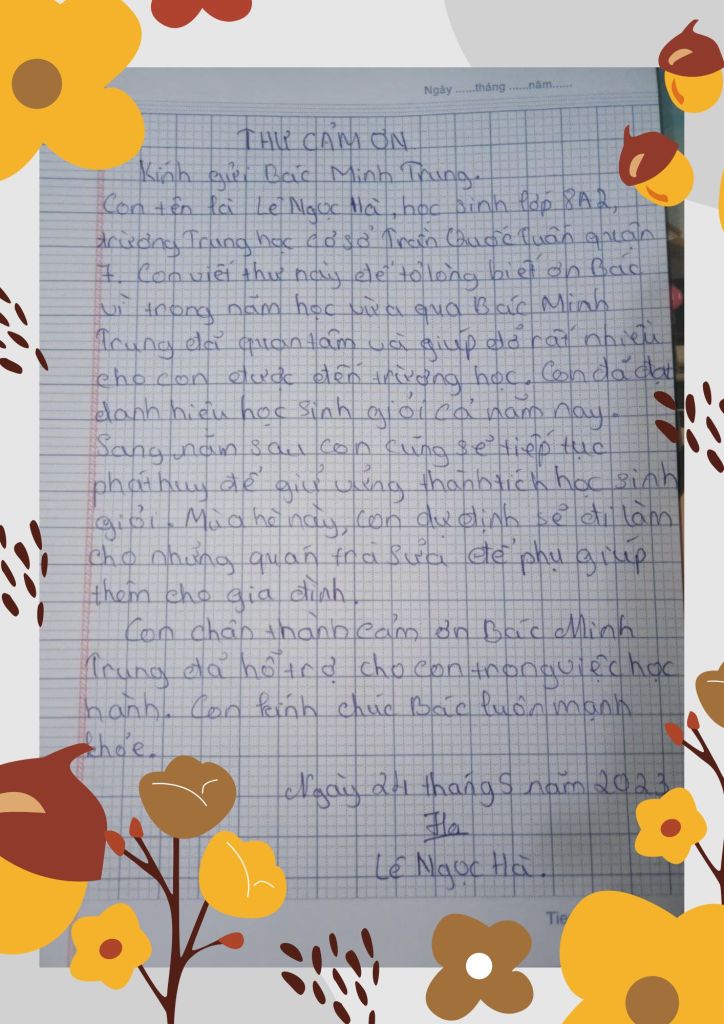 Ngày ......tháng ......năm......
THƯ CẢM ƠN
Kính gửi Bác Minh Trung.
Con tên là Lê Ngọc Hà, học sinh lớp 8A2,
trường Trung học cơ sở Trần Quốc Tuấn quận
7. Con viết thư này để tỏ lòng biết ơn Bác
vì trong năm học vừa qua Bác Minh
Trung đã quan tâm và giúp đỡ rất nhiều
cho con được đến trường học. Con đã đạt
danh hiệu học sinh giỏi cả năm nay.
Sang năm sau con cũng sẽ tiếp tục
phát huy để giữ vững thành tích học sinh
giỏi. Mùa hè này, con dự định sẽ đi làm
cho những quán trà sữa để phụ giúp
thêm cho gia đình.
Con chân thành cảm ơn Bác Minh
Trung đã hỗ trợ cho con trong việc học
hành. Con kính chúc Bác luôn mạnh
khỏe.
Ngày 24 tháng 5 năm 2023
Ha
Lê Ngọc Hà.
Tie